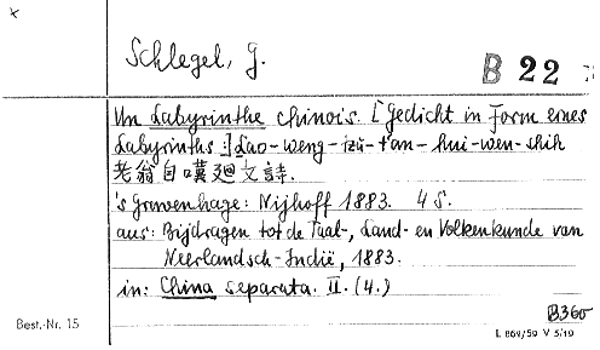 Schlegel, G.
B 22
Un Labyrinthe chinois. [Gedicht in Form eines
Labyrinths:] Lao-weng-tzŭ-t'an-hui-wen-shih
老翁自嘆廻文詩.
's Gravenhage: Nijhoff 1883. 4 S.
aus: Bijdragen tot de Taal-, Land- en Volkenkunde van
Neerlandsch-Indië, 1883.
in: China separata. II. (4.)
B360
Best.-Nr. 15
L 869/59 V 5/19